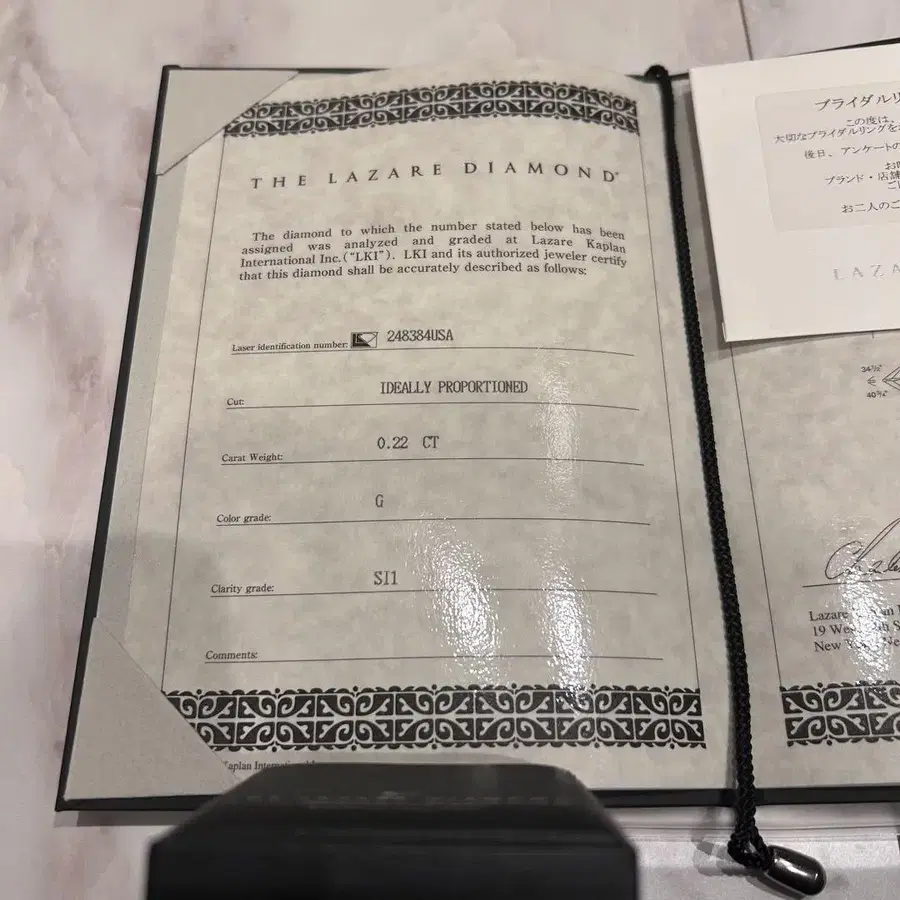 THE LAZARE DIAMOND®
The diamond to which the number stated below has been
assigned was analyzed and graded at Lazare Kaplan
International Inc.("LKI"). LKI and its authorized jeweler certify
that this diamond shall be accurately described as follows:
Laser identification number: 248384USA
Cut: IDEALLY PROPORTIONED
Carat Weight: 0.22 CT
Color grade: G
Clarity grade: SI1
Comments:
Kaplan
ブライダルリ
この度は、
大切なブライダルリングをお
後日、アンケートの
お
ブランド・店舗
ご
お二人のご
LAZA
34½°
40¾°
Lazare
19 West
New